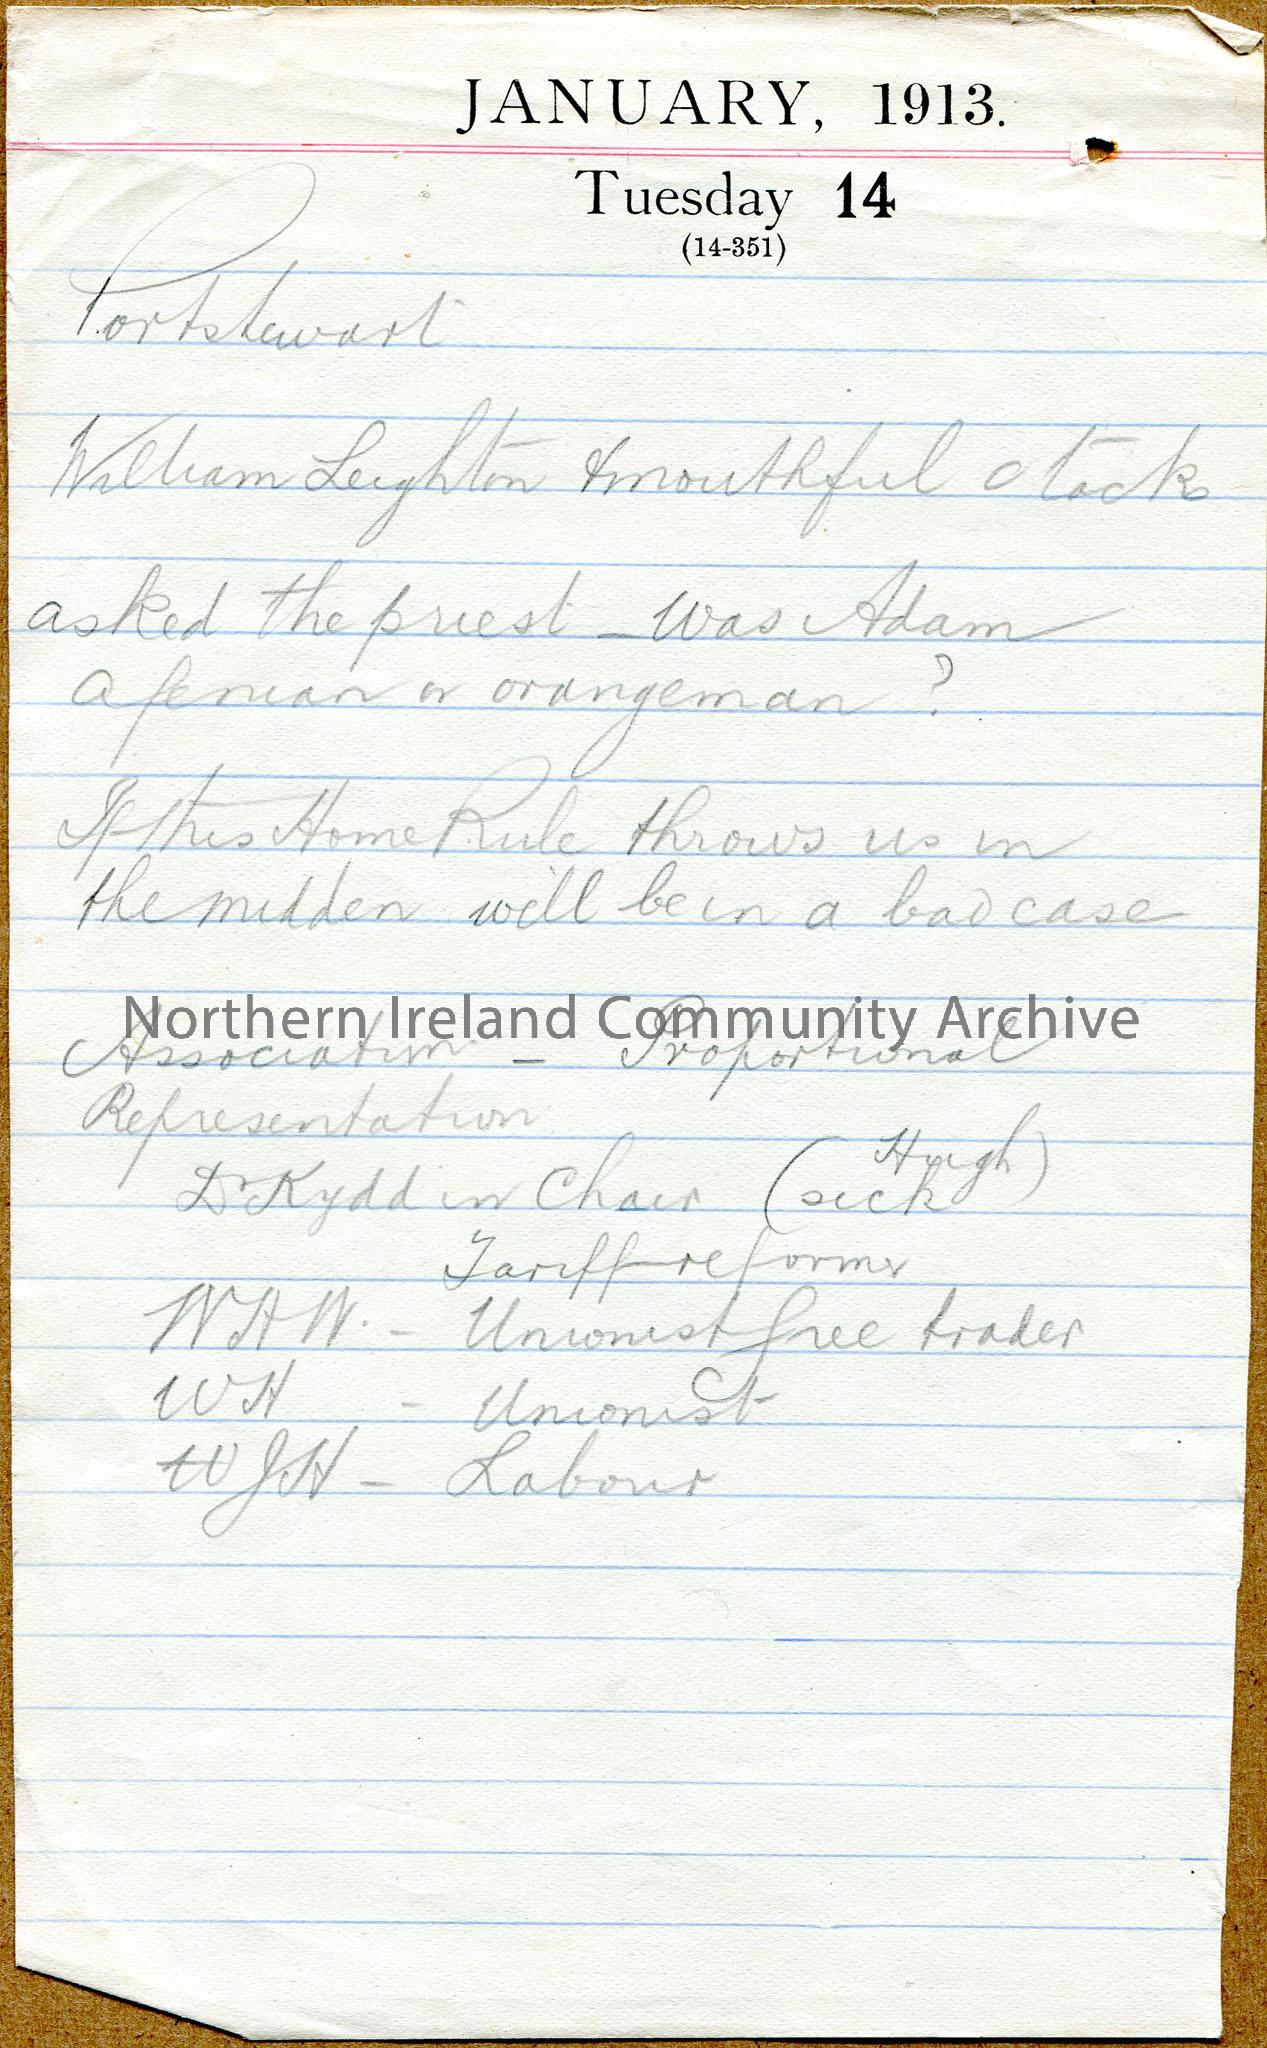 JANUARY, 1913.
Tuesday 14
(14-351)
Portstewart
William Leighton & mouthful o tacks
asked the priest – was Adam
a fenian or orangeman?
If this Home Rule throws us in
the midden well be in a bad case
Northern Ireland Community Archive
Association – Proportional
Representation
Dr Kydd in Chair (Hugh
sick)
Tariff reformer
WHW. – Unionist free trader
WH – Unionist
WJH – Labour